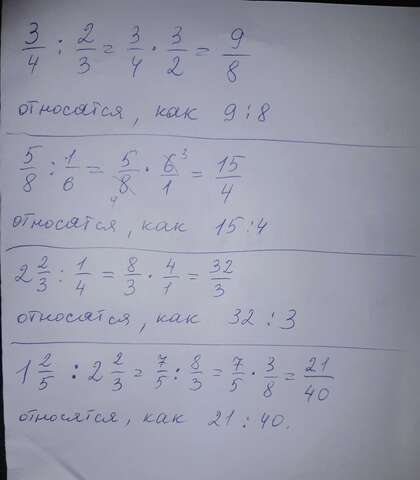 3/4 : 2/3 = 3/4 · 3/2 = 9/8
относятся, как 9 : 8
5/8 : 1/6 = 5/8 4 · 6/1 3 = 15/4
относятся, как 15 : 4
2 2/3 : 1/4 = 8/3 · 4/1 = 32/3
относятся, как 32 : 3
1 2/5 : 2 2/3 = 7/5 : 8/3 = 7/5 · 3/8 = 21/40
относятся, как 21 : 40.